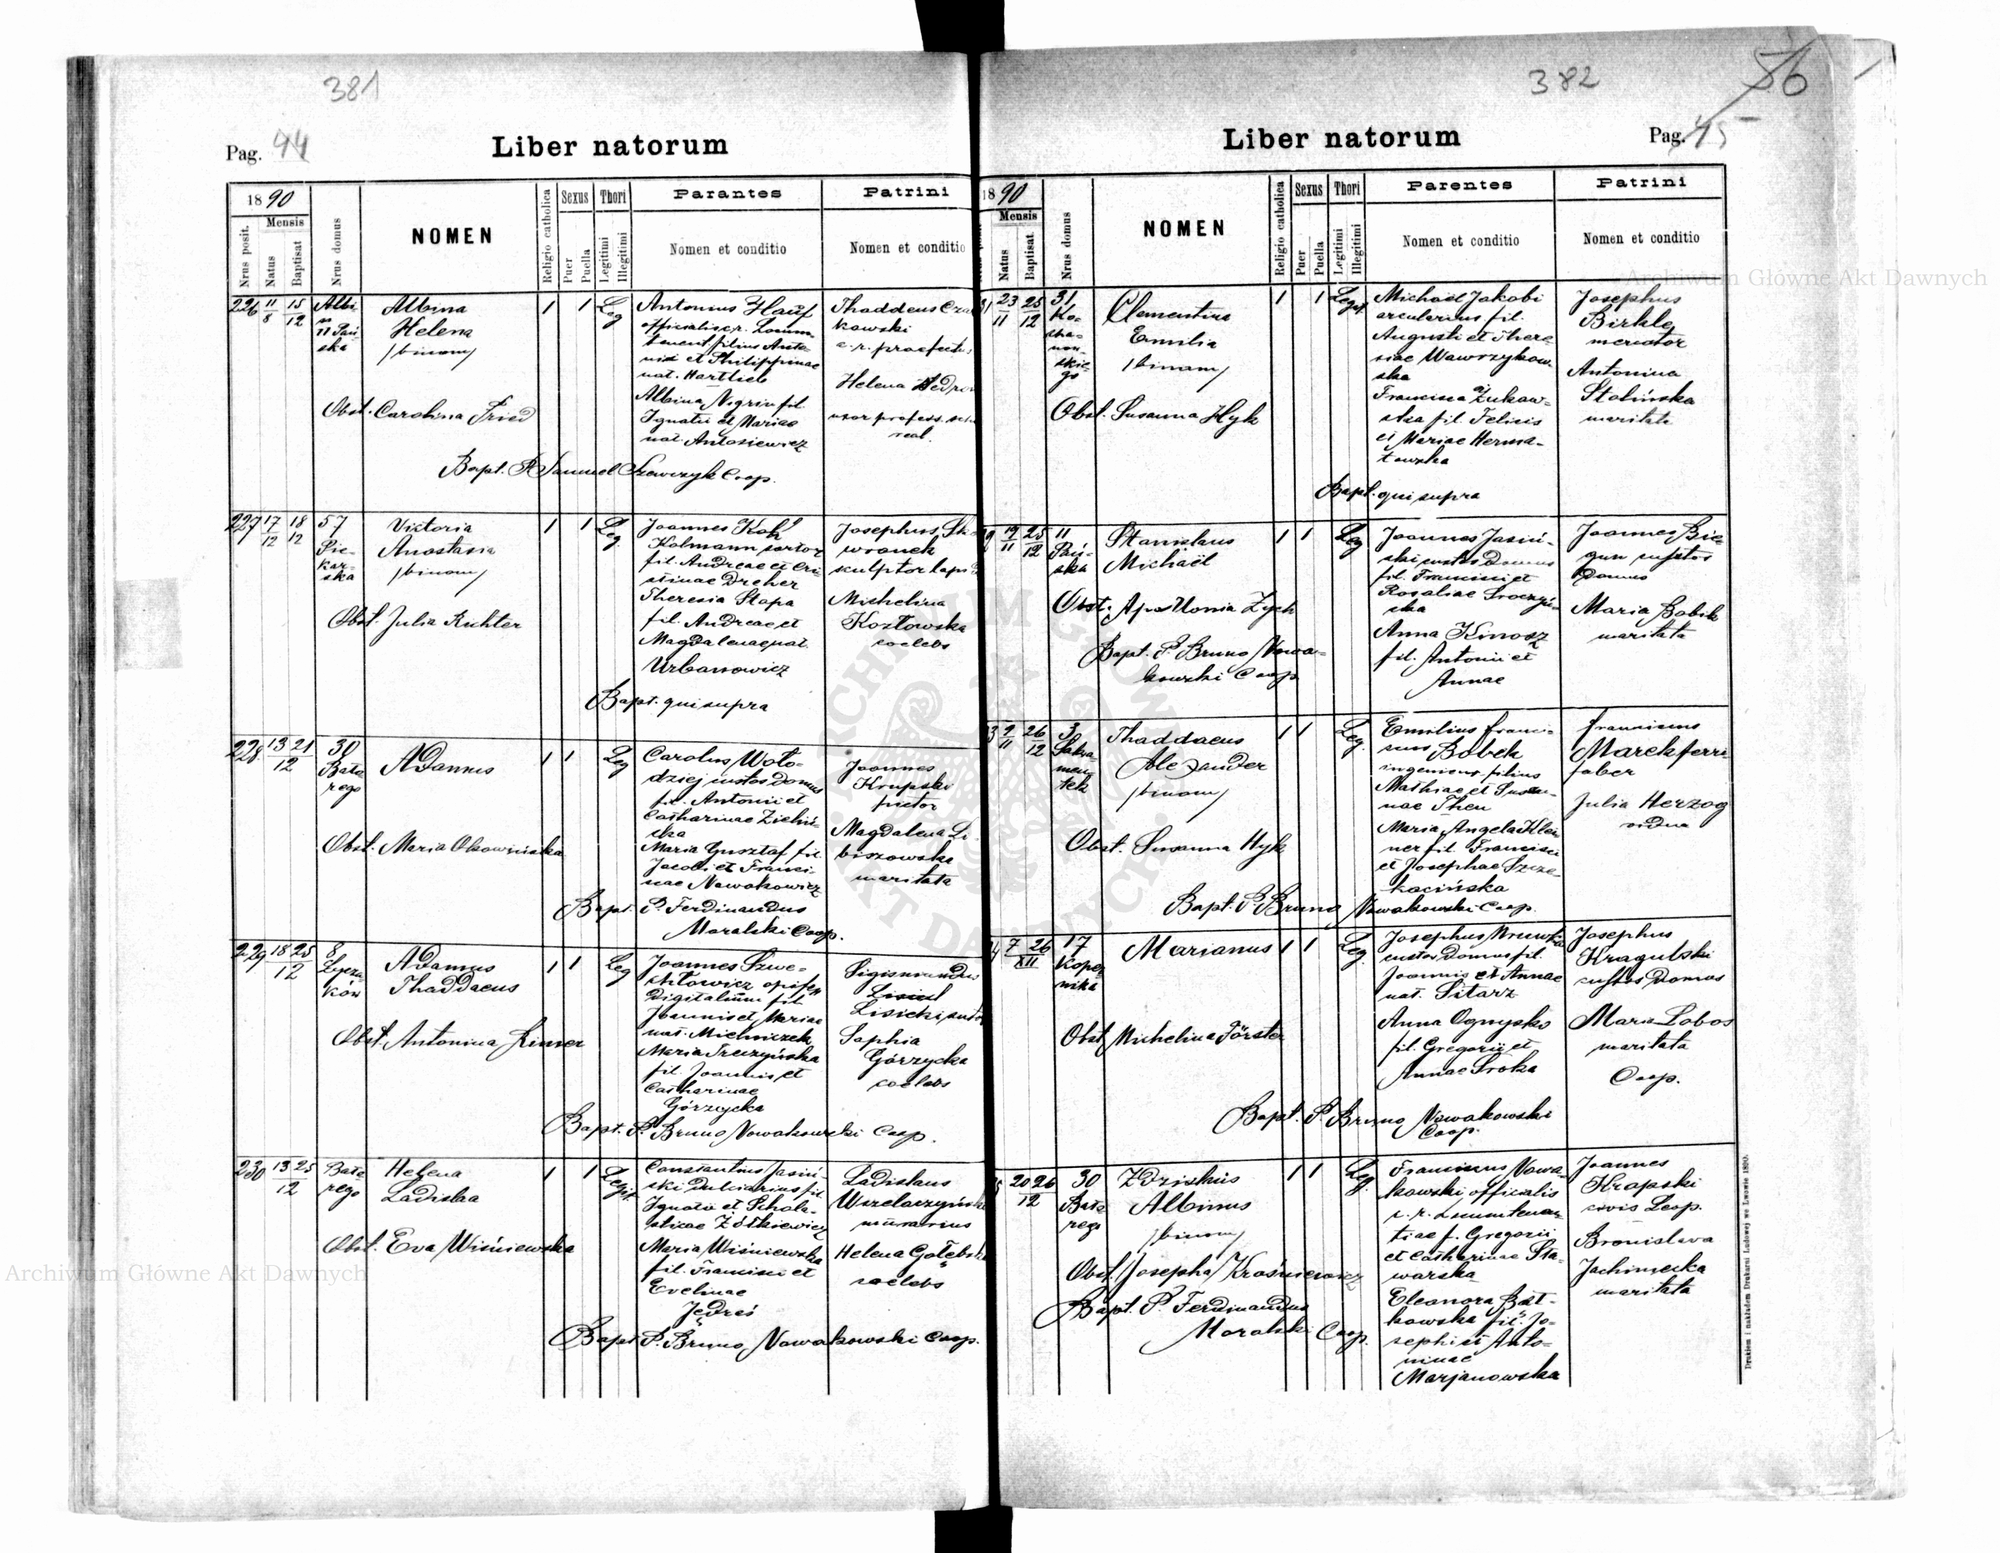 381
Pag. 44
Liber natorum
1890
Mensis
Nrus posit.
Natus
Baptisat
Nrus domus
NOMEN
Religio catholica
Sexus
Puer
Puella
Thori
Legitimi
Illegitimi
Parantes
Nomen et conditio
Patrini
Nomen et conditio
226 11/8 15/12
Albina
Helena
/binom/
1 1 Leg
Antonius Hauf
officialis c.r. Locum
tenent filius Anto-
nii et Philippinae
nat. Hartlieb
Albina Negrin fil.
Ignatii et Mariae
nat. Antosiewicz
Thaddeus
kowski
c. r. praefectus
Helena
uxor profess.
real.
Obst. Carolina Fried
Bapt. P. Samuel Szewczyk Coop.
227 17/12 18/12
57
Pie-
kar-
ska
Victoria
Anastasia
/binom/
1 1 Leg.
Joannes Koh
Kolmann sartor
fil. Andreae et Cri-
stinae Dreher
Theresia Stapa
fil. Andreae et
Magdalenae nat.
Urbanowicz
Josephus Sk-
wronek
sculptor lapid
Michelina
Kozłowska
coelebs
Obst. Julia Richter
Bapt. qui supra
228. 13 21/12
30
Bato
rego
Adamus
1 1 Leg
Carolus Woło-
dziej custos domus
fil. Antonii et
Catharinae Zieliń-
ska
Maria Gusztaf fil.
Jacobi et Franci-
scae Nowakowicz
Joannes
Krupski
pictor
Magdalena Li
biszowska
maritata
Obst. Maria Olszowiniska
Bapt. P. Ferdinandus
Moralski Coop.
229 18 25/12
8
Łycza
ków
Adamus
Thaddaeus
1 1 Leg
Joannes Szwe-
chłowicz opifex
digitalium fil.
Joannis et Mariae
nat. Michniczek
Maria Treczyńska
fil. Joannis et
Catharinae
Górzycka
Sigismundus
Lisicki
Sophia
Górzycka
coelebs
Obst. Antonina Kinner
Bapt. P. Bruno Nowakowski Coop.
230 13 25/12
Bato
rego
Helena
Ladisla
1 1 Legit.
Constantinus Jasiń-
ski dulciarius fil.
Ignatii et Schola-
sticae Żółkiewicz
Maria Wiśniewska
fil. Francisci et
Evelinae
Jędreś
Ladislaus
Wszelaczyński
murarius
Helena Gołębsk
coelebs
Obst. Eva Wiśniewska
Bapt. P. Bruno Nowakowski Coop.
382
56
Liber natorum
Pag. 45
1890
Mensis
Natus
Baptisat.
Nrus domus
NOMEN
Religio catholica
Sexus
Puer
Puella
Thori
Legitimi
Illegitimi
Parentes
Nomen et conditio
Patrini
Nomen et conditio
23/11 25/12
31
Ko-
cha-
now-
skie-
go
Clementina
Emilia
/binom/
1 1 Legit.
Michaël Jakobi
arcularius fil.
Augusti et There-
siae Wawrzykow-
ska
Francisca Żukow-
ska fil. Felicis
et Mariae Herma-
towska
Josephus
Birkle
mercator
Antonina
Stolińska
maritata
Obst. Susanna Hyk
Bapt. qui supra
19/11 25/12
11
Pań-
ska
Stanislaus
Michaël
1 1 Leg
Joannes Jasiń-
ski custos domus
fil. Francisci et
Rosaliae Sroczyń-
ska
Anna Kinosz
fil. Antonii et
Annae
Joannes Bie-
gun custos
domus
Maria Bobik
maritata
Obst. Apollonia Zych
Bapt. P. Bruno Nowa-
kowski Coop.
2/11 26/12
3
Sakra
men-
tek
Thaddaeus
Alexander
/binom/
1 1 Leg.
Emilius Franci-
scus Bobek
ingenieur filius
Mathiae et Susan-
nae Theu
Maria Angela Klei
ner fil. Francisci
et Josephae Szcze-
kocińska
Franciscus
Marek ferri
faber
Julia Herzog
vidua
Obst. Susanna Hyk
Bapt. P. Bruno Nowakowski Coop.
7 26/XII
17
Koper
nika
Marianus
1 1 Leg.
Josephus Mrówka
custos domus fil.
Joannis et Annae
nat. Sitarz
Anna Ognysko
fil. Gregorii et
Annae Sroka
Josephus
Kragulski
custos domus
Maria Lobos
maritata
Coop.
Obst. Michelina Förster
Bapt. P. Bruno Nowakowski
Coop.
20 26/12
30
Bato
rego
Zdzislaus
Albinus
/binom/
1 1 Leg.
Franciscus Nowa-
kowski officialis
c. r. Locumtenen-
tiae f. Gregorii
et Catharinae Sta-
warska
Eleonora Bat-
kowska fil. Jo-
sephi et Anto-
ninae
Marjanowska
Joannes
Krapski
civis Leop.
Bronislava
Jachimecka
maritata
Obst. Josepha Krośniewicz
Bapt. P. Ferdinandus
Moralski Coop.
Drukiem i nakładem Drukarni Ludowej we Lwowie 1890.
Archiwum Główne Akt Dawnych
Archiwum Główne Akt Dawnych